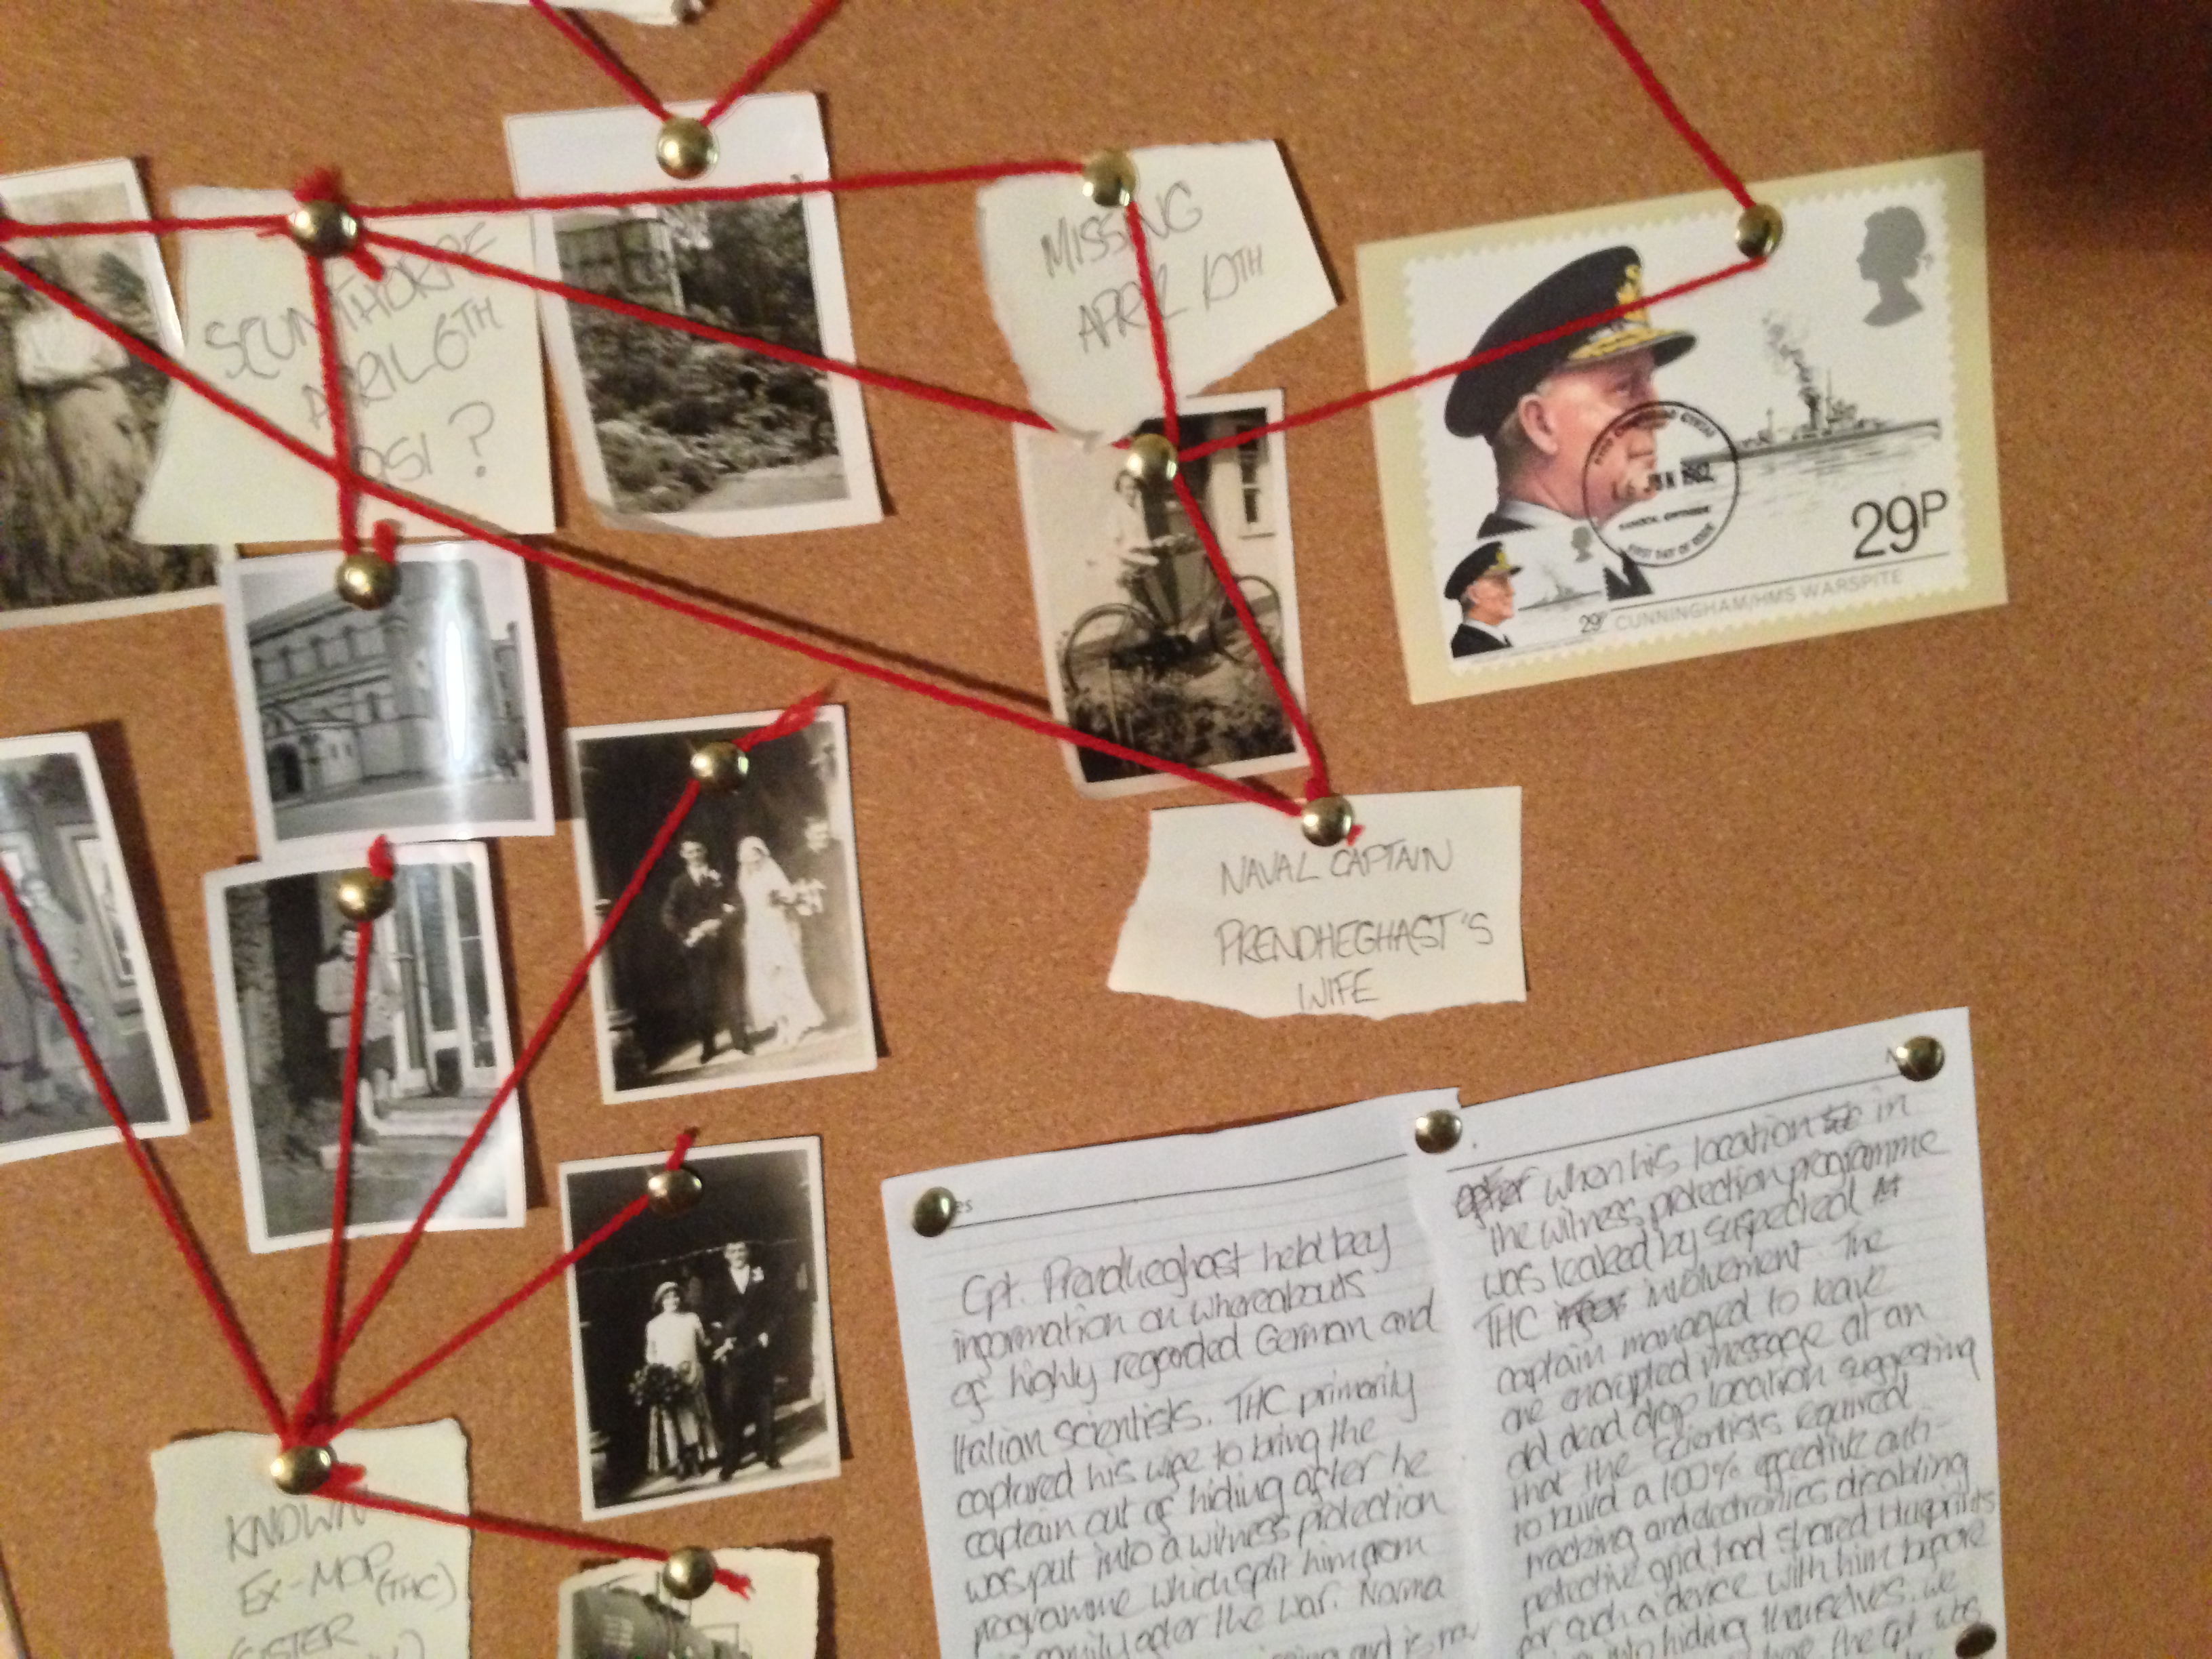 SCUNTHORPE
APRIL 6TH
OSI?
MISSING
APRIL 10TH
JUN 1982
FIRST DAY OF ISSUE
29P
29P
CUNNINGHAM/HMS WARSPITE
NAVAL CAPTAIN
PRENDHEGHAST'S
WIFE
KNOWN
EX-MOP (THC)
SISTER
es
Cpt. Prendheghast held key
information on whereabouts
of highly regarded German and
Italian scientists. THC primarily
captured his wife to bring the
captain out of hiding after he
was put into a witness protection
programme which split him from
family after the war. Norma
and is
when his location in
the witness protection programme
was leaked by suspected
THC involvement. The
captain managed to leave
one encrypted message at an
old dead drop location suggesting
that the scientists required
to build a 100% effective anti-
tracking and electronics disabling
protective grid, had shared blueprints
for such a device with him before
into hiding themselves. We
the Cpt was